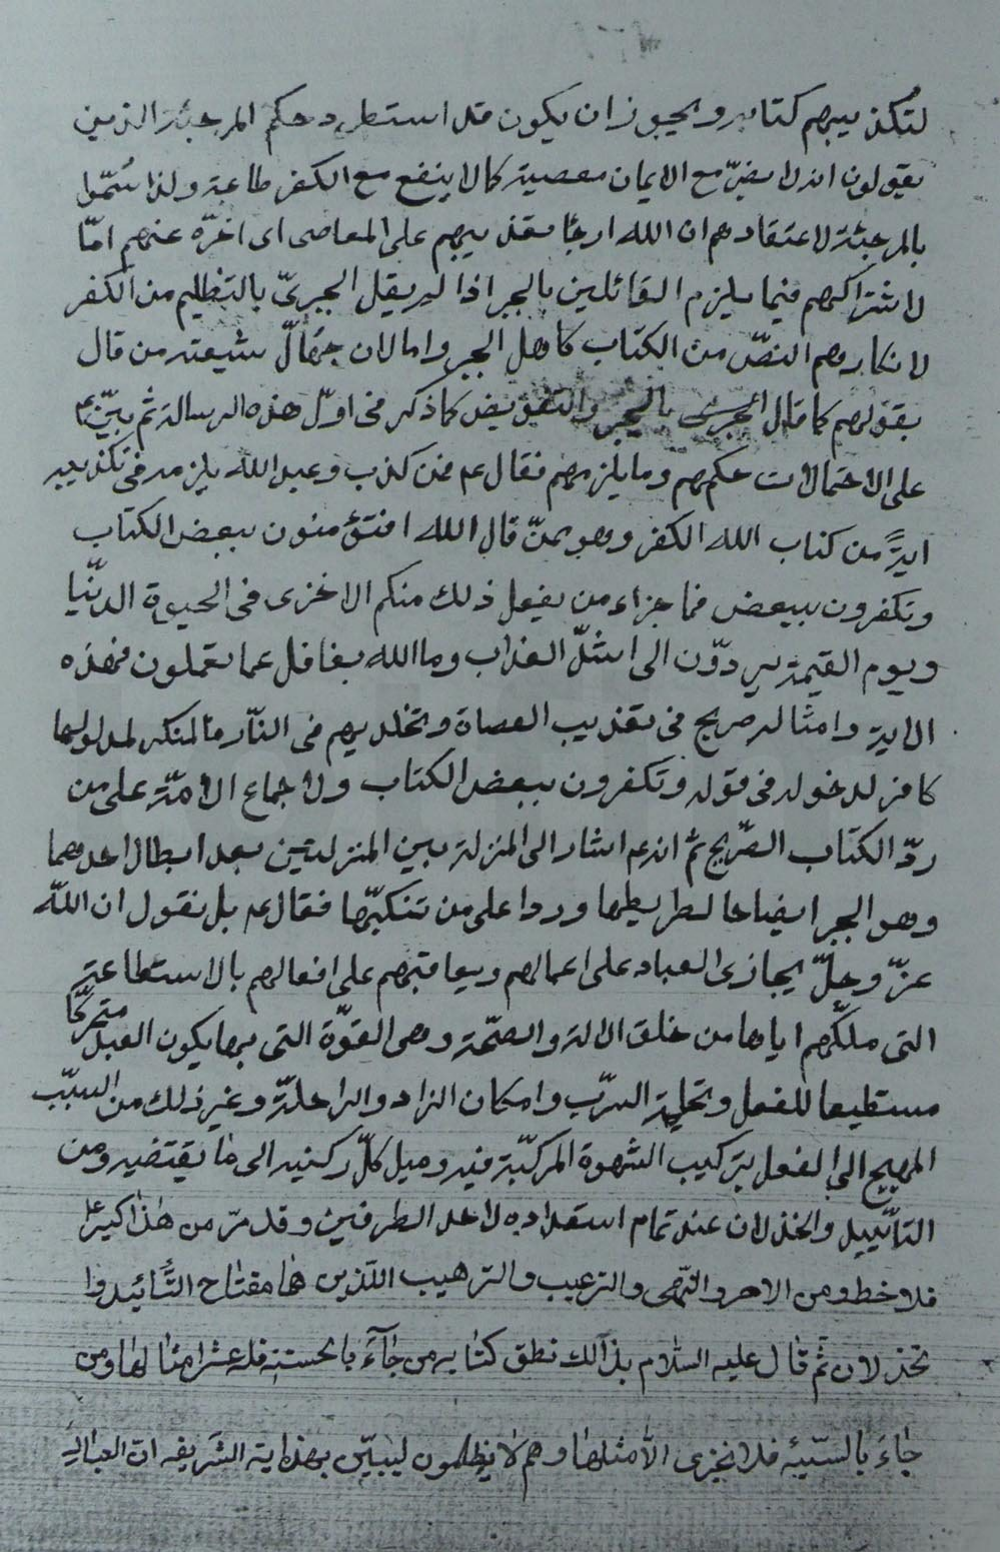 لتكذيبهم كتابه ويجوز ان يكون قد استطرد حكم المرجئة الذين
يقولون انه لا يضرّ مع الايمان معصية كما لا ينفع مع الكفر طاعة ولذا سُمّوا
بالمرجئة لاعتقادهم ان الله ارجأ تعذيبهم على المعاصى اى اخّره عنهم امّا
لاشتراكهم فيما يلزم القائلين بالجبر اذا لم يقل الجبرىّ بالتظليم من الكفر
لانكارهم النصّ من الكتاب كاهل الجبر واما لان جهّال شيعته من قال
بقولهم كما قال بالجبر والتفويض كما ذكر فى اوّل هذه الرسالة ثم بيّن ع
على الاحتمالات حكمهم وما يلزمهم فقال ع فمن كذب وعيد الله يلزمه فى تكذيبه
ايةً من كتاب الله الكفر وهو ممنّ قال الله افتؤمنون ببعض الكتاب
وتكفرون ببعض فما جزاء من يفعل ذلك منكم الا خزى فى الحيوة الدنّيا
ويوم القيمة يردّون الى اشدّ العذاب وما الله بغافل عما تعملون فهذه
الاية وامثاله صريح فى تعذيب العصاة وتخليدهم فى النّار فالمنكر لمدلولها
كافر لدخوله فى قوله وتكفرون ببعض الكتاب ولاجماع الامّة على من
ردّ الكتاب الصّريح ثم انه ع اشار الى المنزلة بين المنزلتين بعد ابطال احدهما
وهو الجبر ايضاحا لطريطها وردا على من تنكبّها فقال ع بل نقول ان اللّه
عزّ وجلّ يجازى العباد على اعمالهم ويعاقبهم على افعالهم بالاستطاعة
التى ملّكهم اياها من خلق الالة والصّحّة وهى القوّة التى بها يكون العبد متحركّا
مستطيعا للفعل وتخلية السرّب وامكان الزاد والراحلةّ وغير ذلك من السببّ
المهيج الى الفعل بتركيب الشهوة المركبّة فيه وميل كلّ ركنيه الى ما يقتضيه ومن
التأئييل والخذلان عند تمام استعداده لاحد الطرفين وقد مرّ من هذا كثير
فلاحظ ومن الامر والنّهى والترغيب والترهيب اللّذين هما مفتاح التّأئيد وا
تخذلان ثم قال عليه السّلام بذالك نطق كتابه من جآءَ بالحسنة فله عشر امثالها ومن
جاءَ بالسّيئة فلا يجزى الّا مثلها وهم لا يظلمون ليبيّن بهذه اية الشّريفه انّ العباد